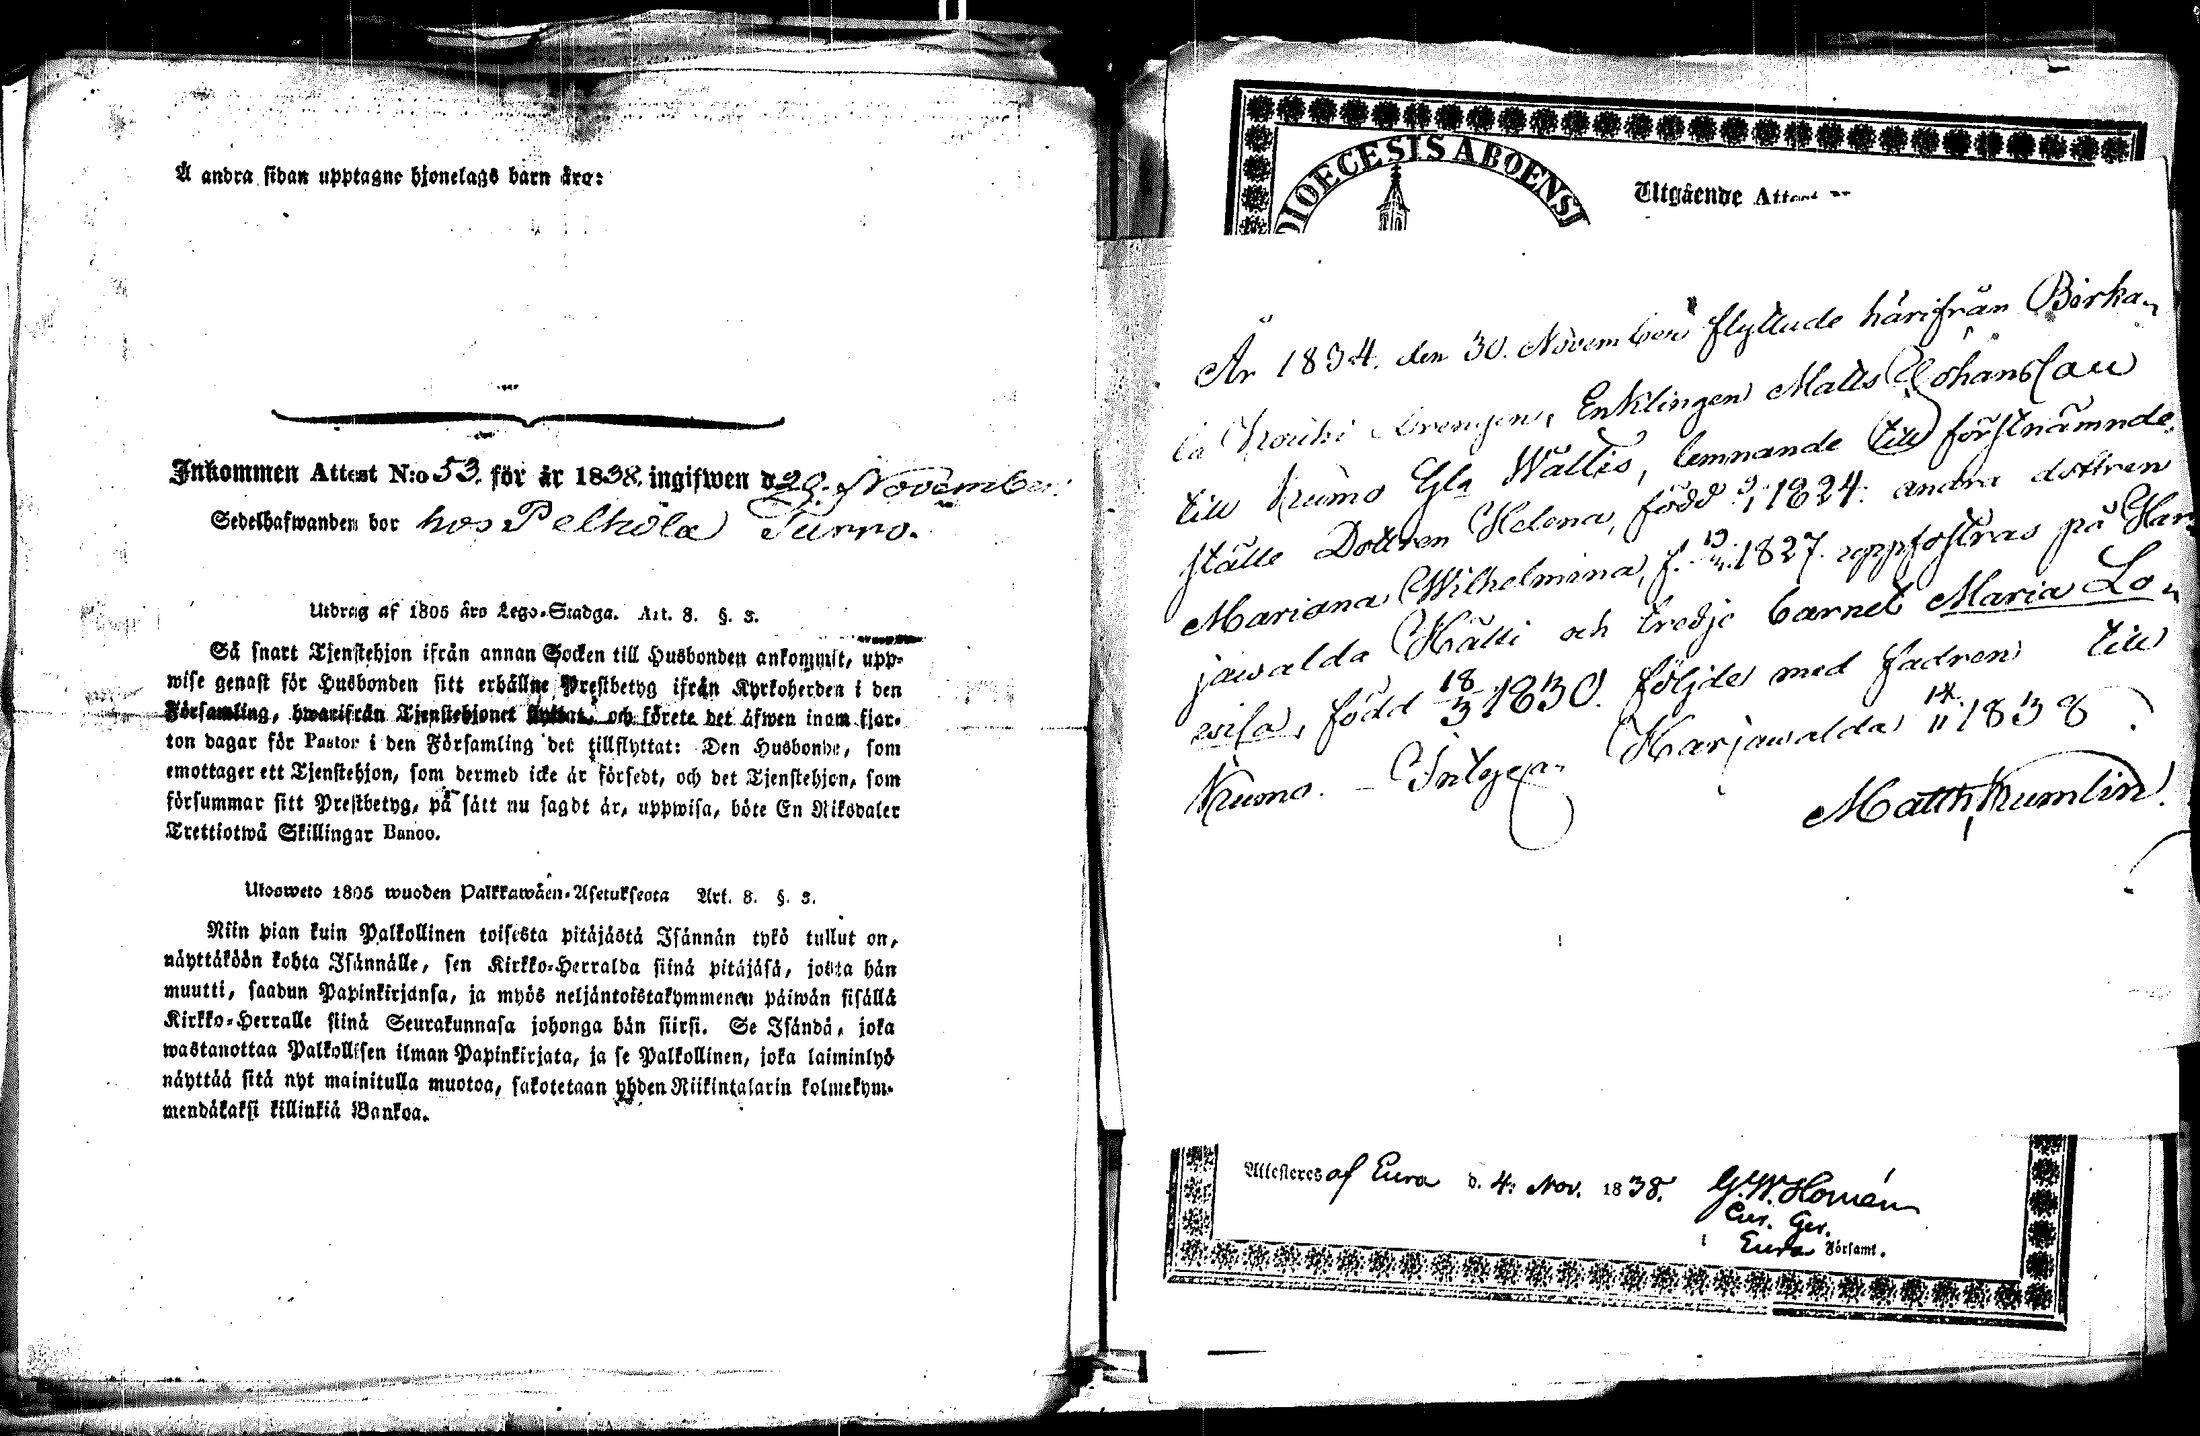 Å andra sidan upptagne hjonelags barn äro:
Inkommen Attest N:o 53. för år 1838. ingifwen d 29. November.
Sedelhafwanden bor hos Pelhola Turro.
Utdrag af 1805 års Lego-Stadga. Art. 8. §. 3.
Så snart Tjenstehjon ifrån annan Socken till Husbonden ankommit, upp-
wise genast för Husbonden sitt erhållne Prestbetyg ifrån Kyrkoherden i den
Församling, hwarifrån Tjenstehjonet flyttat, och förete det äfwen inom fjor-
ton dagar för Pastor i den Församling det tillflyttat: Den Husbonde, som
emottager ett Tjenstehjon, som dermed icke är försedt, och det Tjenstehjon, som
försummar sitt Prestbetyg, på sätt nu sagdt är, uppwisa, böte En Riksdaler
Trettiotwå Skillingar Banco.
Ulosweto 1805 wuoden Palkkawäen-Asetuksesta Art. 8. §. 3.
Niin pian kuin Palkollinen toisesta pitäjästä Isännän tykö tullut on,
näyttäköön kohta Isännälle, sen Kirkko-Herralda siinä pitäjäsä, josta hän
muutti, saadun Papinkirjansa, ja myös neljäntoistakymmenen päiwän sisällä
Kirkko-Herralle siinä Seurakunnasa johonga hän siirsi. Se Isändä, joka
wastanottaa Palkollisen ilman Papinkirjata, ja se Palkollinen, joka laiminlyö
näyttää sitä nyt mainitulla muotoa, sakotetaan yhden Riikintalarin kolmekym-
mendäkaksi killinkiä Bankoa.
DIOECESIS ABOENSI
Utgående Attest
År 1834. den 30. November flyttade härifrån Birka-
la Enklingen Matts Johansson
till Kumo Gla Wältis, lemnande till förstnämnde
ställe Dottren Helena, född 1824. andra dottren
Mariana Wilhelmina, f. 1827. uppfostras på Har-
jawalda Hälli och tredje barnet Maria Lo-
wisa, född 18/3 1830. följde med fadren till
Kumo. Intyga. Harjawalda 14/11 1838
Matth. Kumlin.
Attesteres af Eura d. 4: Nov. 1838. G. W. Homén
Cur. Ger.
Eura Församl.